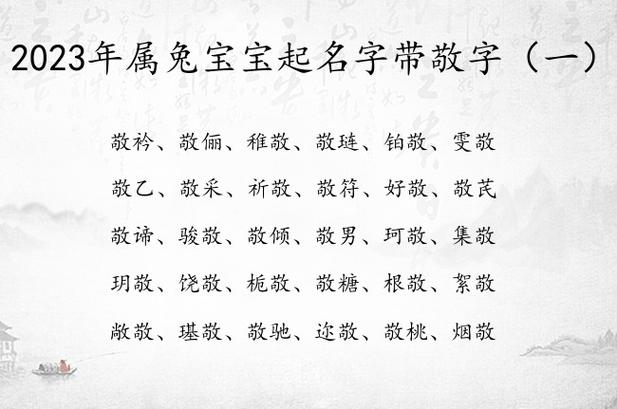 2023年属兔宝宝起名字带敬字（一）
敬衿、敬俪、稚敬、敬琏、铂敬、雯敬
敬乙、敬采、祈敬、敬符、好敬、敬芪
敬谛、骏敬、敬倾、敬男、珂敬、集敬
玥敬、饶敬、栀敬、敬糖、根敬、絮敬
敞敬、琪敬、敬驰、迩敬、敬桃、烟敬